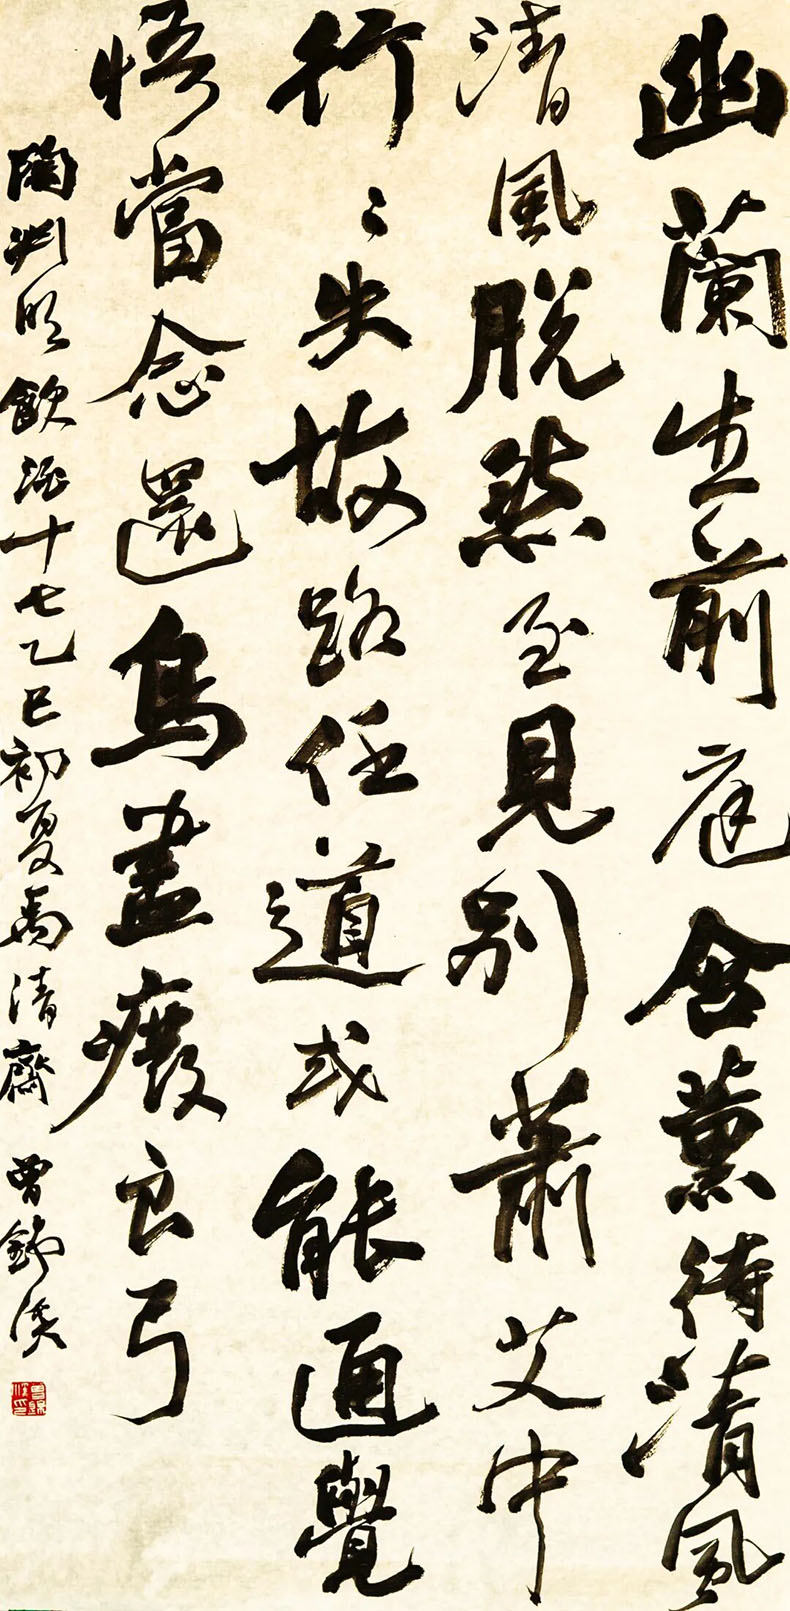 幽蘭生前庭含薰待清風
清風脫然至見別蕭艾中
行〻失故路任道或能通覺
悟當念還鳥盡廢良弓
陶淵明飲酒十七乙巳初夏清齋 曾錦溪